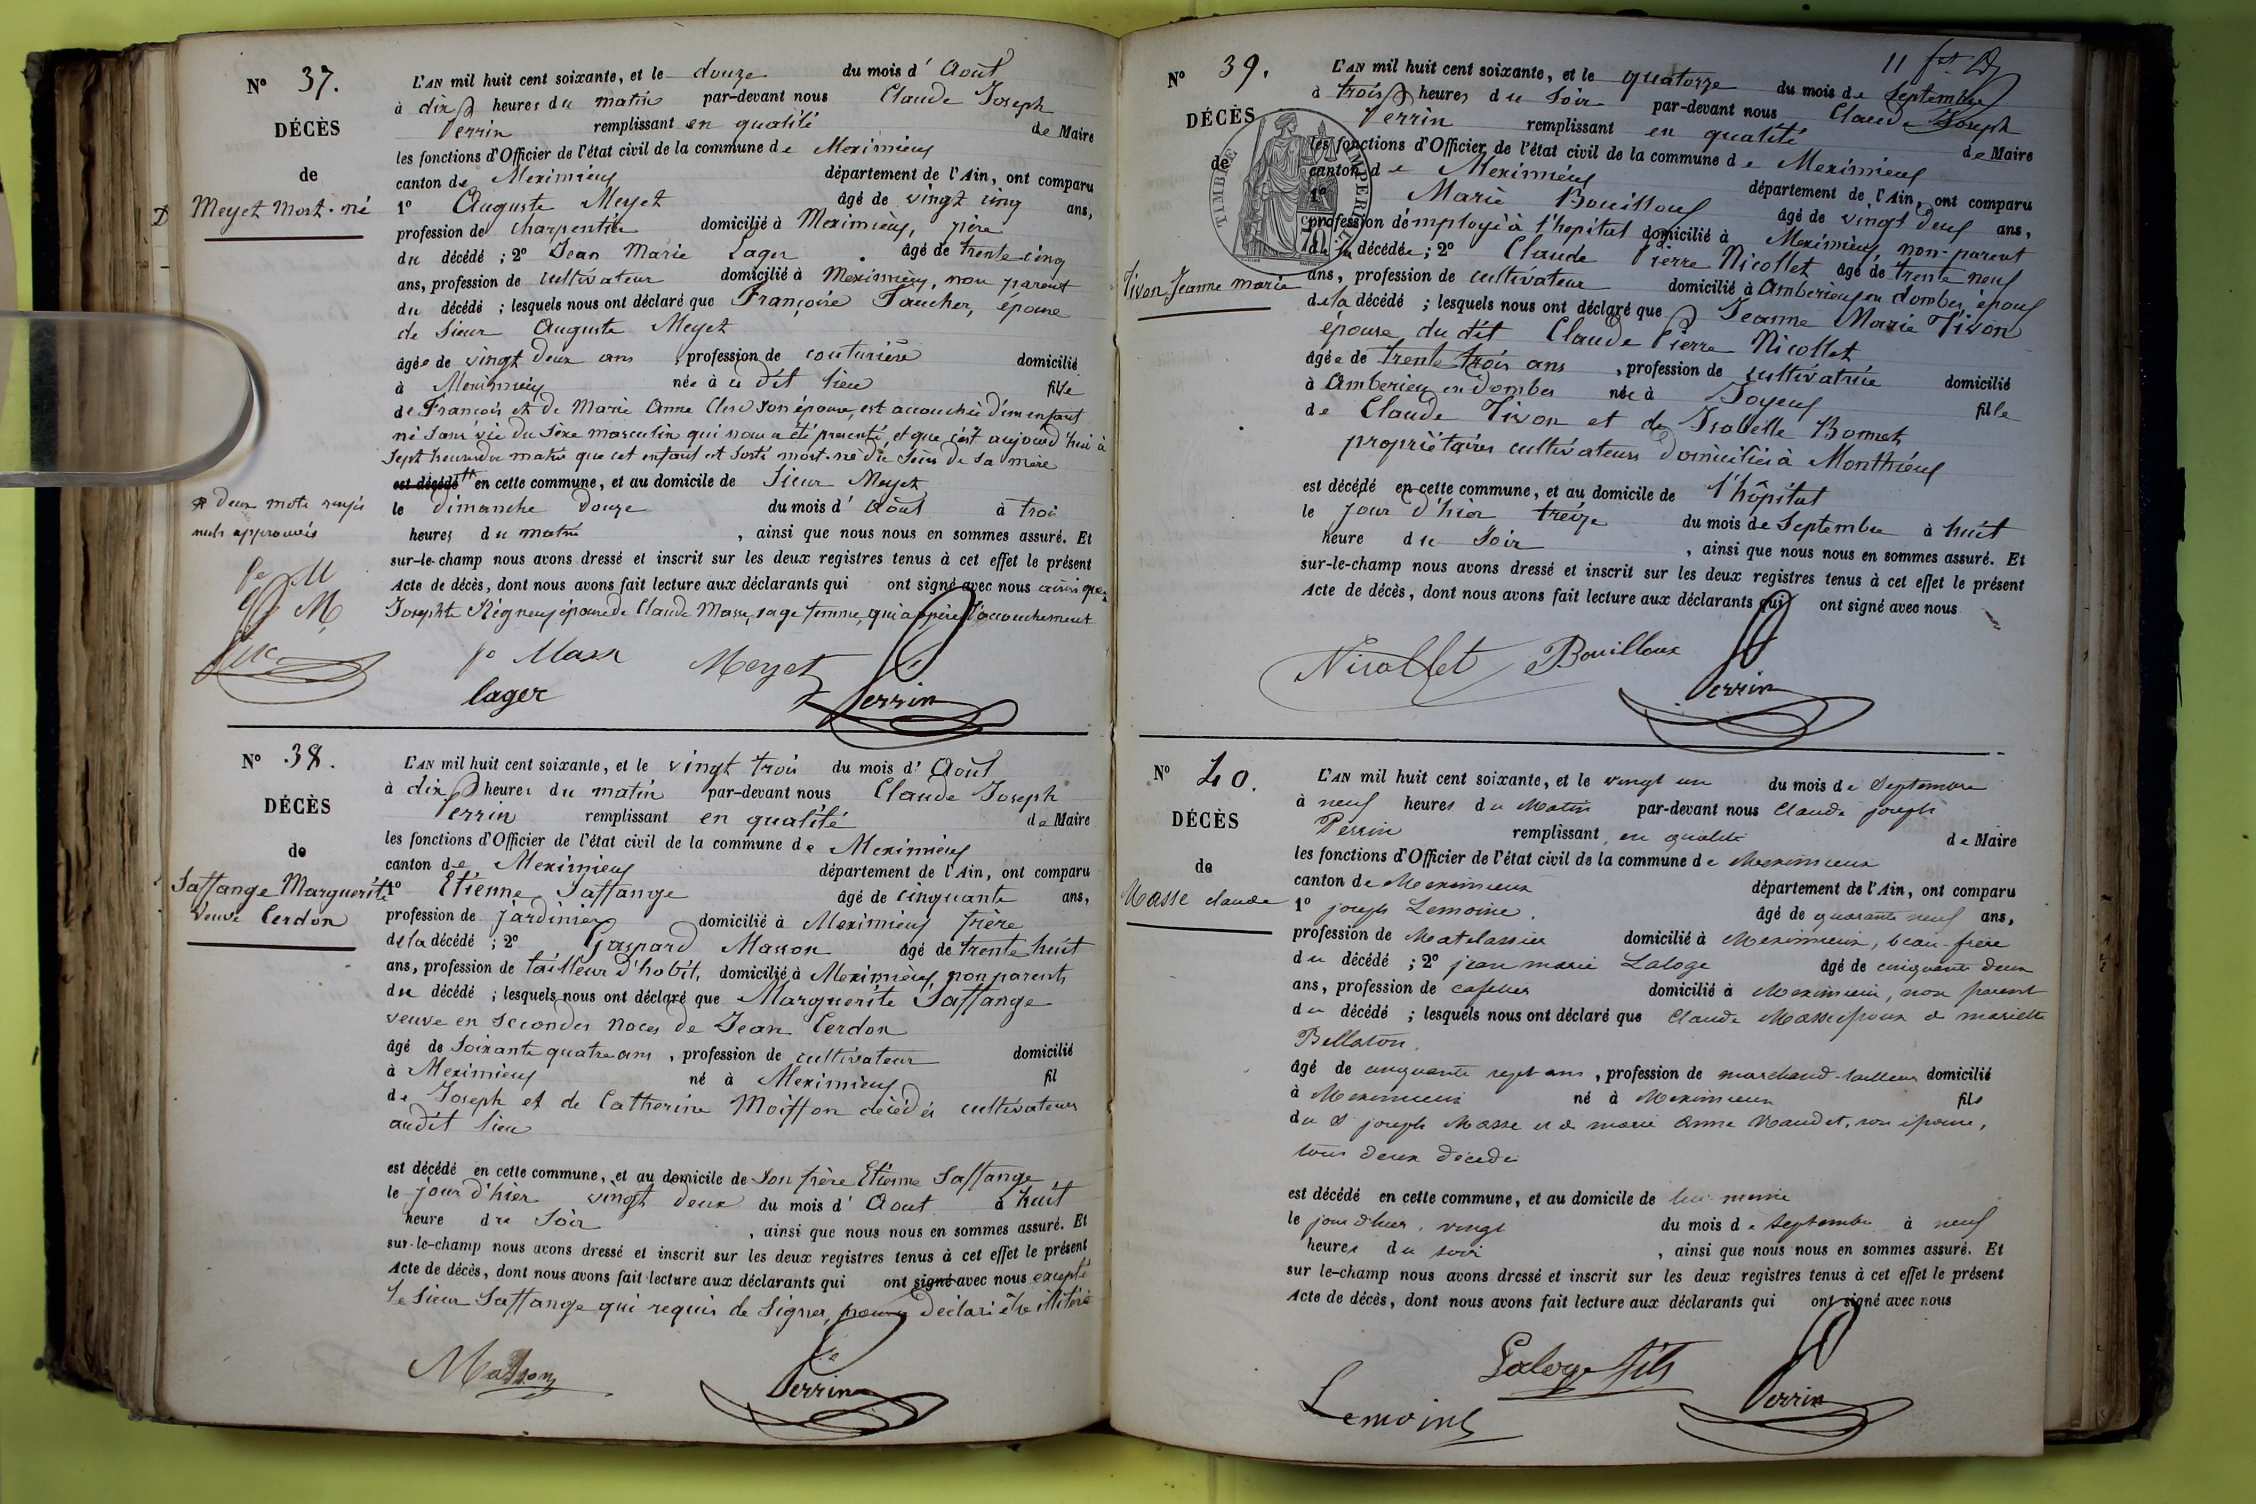 N° 37.
DÉCÈS
de
Meyet Mort-né
L'AN mil huit cent soixante, et le douze du mois d' Août
à dix heures du matin par-devant nous Claude Joseph
Perrin remplissant en qualité de Maire
les fonctions d'Officier de l'état civil de la commune de Meximieux
canton de Meximieux département de l'Ain, ont comparu
1° Auguste Meyet âgé de vingt cinq ans,
profession de charpentier domicilié à Meximieux, père
du décédé ; 2° Jean Marie Lager âgé de trente cinq
ans, profession de cultivateur domicilié à Meximieux, non parent
du décédé ; lesquels nous ont déclaré que Françoise Faucher, épouse
de Sieur Auguste Meyet
âgée de vingt deux ans, profession de couturière domicilié
à Meximieux née à ce dit lieu fille
de François et de Marie Anne Clerc son épouse, est accouchée d'un enfant
né sans vie du sexe masculin qui nous a été présenté, et que c'est aujourd'hui à
sept heures du matin que cet enfant est sorti mort-né du sein de sa mère
est décédé en cette commune, et au domicile de Sieur Meyet
le dimanche douze du mois d' Août à trois
heures du matin, ainsi que nous nous en sommes assuré. Et
sur-le-champ nous avons dressé et inscrit sur les deux registres tenus à cet effet le présent
Acte de décès, dont nous avons fait lecture aux déclarants qui ont signé avec nous ainsi que
Josephte Régneux épouse de Claude Masse, sage femme, qui a opéré l'accouchement
deux mots rayés
nuls approuvés
fe Masse Meyet
lager Perrin
N° 38.
DÉCÈS
de
Saffange Marguerite
Veuve Cerdon
L'AN mil huit cent soixante, et le vingt trois du mois d' Août
à dix heures du matin par-devant nous Claude Joseph
Perrin remplissant en qualité de Maire
les fonctions d'Officier de l'état civil de la commune de Meximieux
canton de Meximieux département de l'Ain, ont comparu
1° Etienne Saffange âgé de cinquante ans,
profession de jardinier domicilié à Meximieux frère
de la décédé ; 2° Gaspard Masson âgé de trente huit
ans, profession de tailleur d'habit, domicilié à Meximieux, non parents
du décédé ; lesquels nous ont déclaré que Marguerite Saffange
veuve en secondes noces de Jean Cerdon
âgé de soixante quatre ans, profession de cultivateur domicilié
à Meximieux né à Meximieux fil
de Joseph et de Catherine Moiffon décédés cultivateurs
audit lieu
est décédé en cette commune, et au domicile de son frère Etienne Saffange
le jour d'hier vingt deux du mois d' Aout à huit
heure du soir, ainsi que nous nous en sommes assuré. Et
sur-le-champ nous avons dressé et inscrit sur les deux registres tenus à cet effet le présent
Acte de décès, dont nous avons fait lecture aux déclarants qui ont signé avec nous excepté
le Sieur Saffange qui requis de signer, déclaré être illitéré
Masson Perrin
11 fet
N° 39.
DÉCÈS
de
Tivon Jeanne Marie
TIMBRE IMPERIAL
L'AN mil huit cent soixante, et le quatorze du mois de Septembre
à trois heures du soir par-devant nous Claude Joseph
Perrin remplissant en qualité de Maire
les fonctions d'Officier de l'état civil de la commune de Meximieux
canton de Meximieux département de l'Ain, ont comparu
1° Marie Bouilloux âgé de vingt deux ans,
profession d'employé à l'hopital domicilié à Meximieux, non-parent
de la décédée ; 2° Claude Pierre Nicollet âgé de trente neuf
ans, profession de cultivateur domicilié à Amberieux en dombes, époux
de la décédé ; lesquels nous ont déclaré que Jeanne Marie Tivon
épouse du dit Claude Pierre Nicollet
âgée de trente trois ans, profession de cultivatrice domicilié
à Amberieux en Dombes née à Joyeux fille
de Claude Tivon et de Isabelle Bonnet
propriétaires cultivateurs domiciliés à Monthieux
est décédé en cette commune, et au domicile de l'hôpital
le jour d'hier treize du mois de Septembre à huit
heure du Soir, ainsi que nous nous en sommes assuré. Et
sur-le-champ nous avons dressé et inscrit sur les deux registres tenus à cet effet le présent
Acte de décès, dont nous avons fait lecture aux déclarants qui ont signé avec nous
Nicollet Bouilloux
Perrin
N° 40.
DÉCÈS
de
Masse claude
L'AN mil huit cent soixante, et le vingt un du mois de Septembre
à neuf heures du Matin par-devant nous Claude joseph
Perrin remplissant en qualité de Maire
les fonctions d'Officier de l'état civil de la commune de Meximieux
canton de Meximieux département de l'Ain, ont comparu
1° joseph Lemoine. âgé de quarante neuf ans,
profession de Matelassier domicilié à Meximieux, beau-frère
du décédé ; 2° jean marie Laloge âgé de cinquante deux
ans, profession de cafetier domicilié à Meximieux, non parent
du décédé ; lesquels nous ont déclaré que Claude Masse époux de mariette
Bellaton.
âgé de cinquante sept ans, profession de marchand-tailleur domicilié
à Meximieux né à Meximieux fils
du d joseph Masse et de marie Anne Naudet, son épouse,
tous deux décédés
est décédé en cette commune, et au domicile de lui même
le jour d'hier, vingt du mois de septembre à neuf
heures du soir, ainsi que nous nous en sommes assuré. Et
sur le-champ nous avons dressé et inscrit sur les deux registres tenus à cet effet le présent
Acte de décès, dont nous avons fait lecture aux déclarants qui ont signé avec nous
Laloge fils
Lemoine Perrin